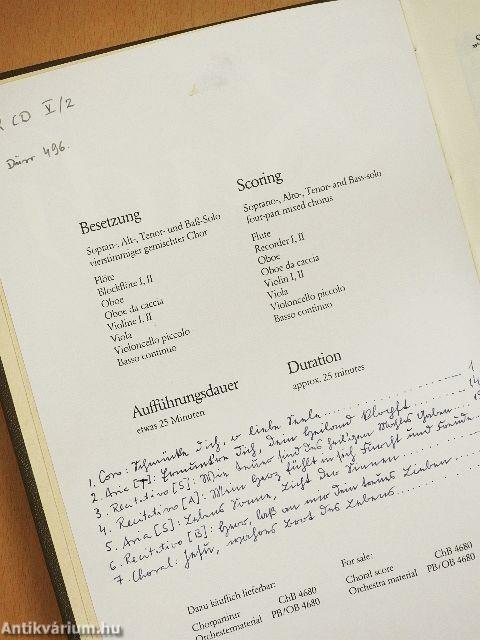 CD V/2
Dürr 496.
Besetzung
Sopran-, Alt-, Tenor- und Baß-Solo
vierstimmiger gemischter Chor
Flöte
Blockflöte I, II
Oboe
Oboe da caccia
Violine I, II
Viola
Violoncello piccolo
Basso continuo
Scoring
Soprano-, Alto-, Tenor- and Bass-solo
four-part mixed chorus
Flute
Recorder I, II
Oboe
Oboe da caccia
Violin I, II
Viola
Violoncello piccolo
Basso continuo
Aufführungsdauer
etwas 25 Minuten
Duration
approx. 25 minutes
1. Coro. Schmücke dich, o liebe Seele.......... 1
2. Aria [T]: Ermuntre dich, dein Heiland klopft ..... 14
3. Recitativo [S]: Wie teuer sind des heilgen Mahles Gaben
4. Recitativo [A]: Mein Herz fühlt in sich Furcht und Freude
5. Aria [S]: Lebens Sonne, Licht der Sinnen
6. Recitativo [B]: Herr, laß an mir dein treues Lieben
7. Choral: Jesu, wahres Brot des Lebens
Dazu käuflich lieferbar:
Chorpartitur ChB 4680
Orchestermaterial PB/OB 4680
For sale:
Choral score ChB 4680
Orchestra material PB/OB 4680
Antikvárium.hu